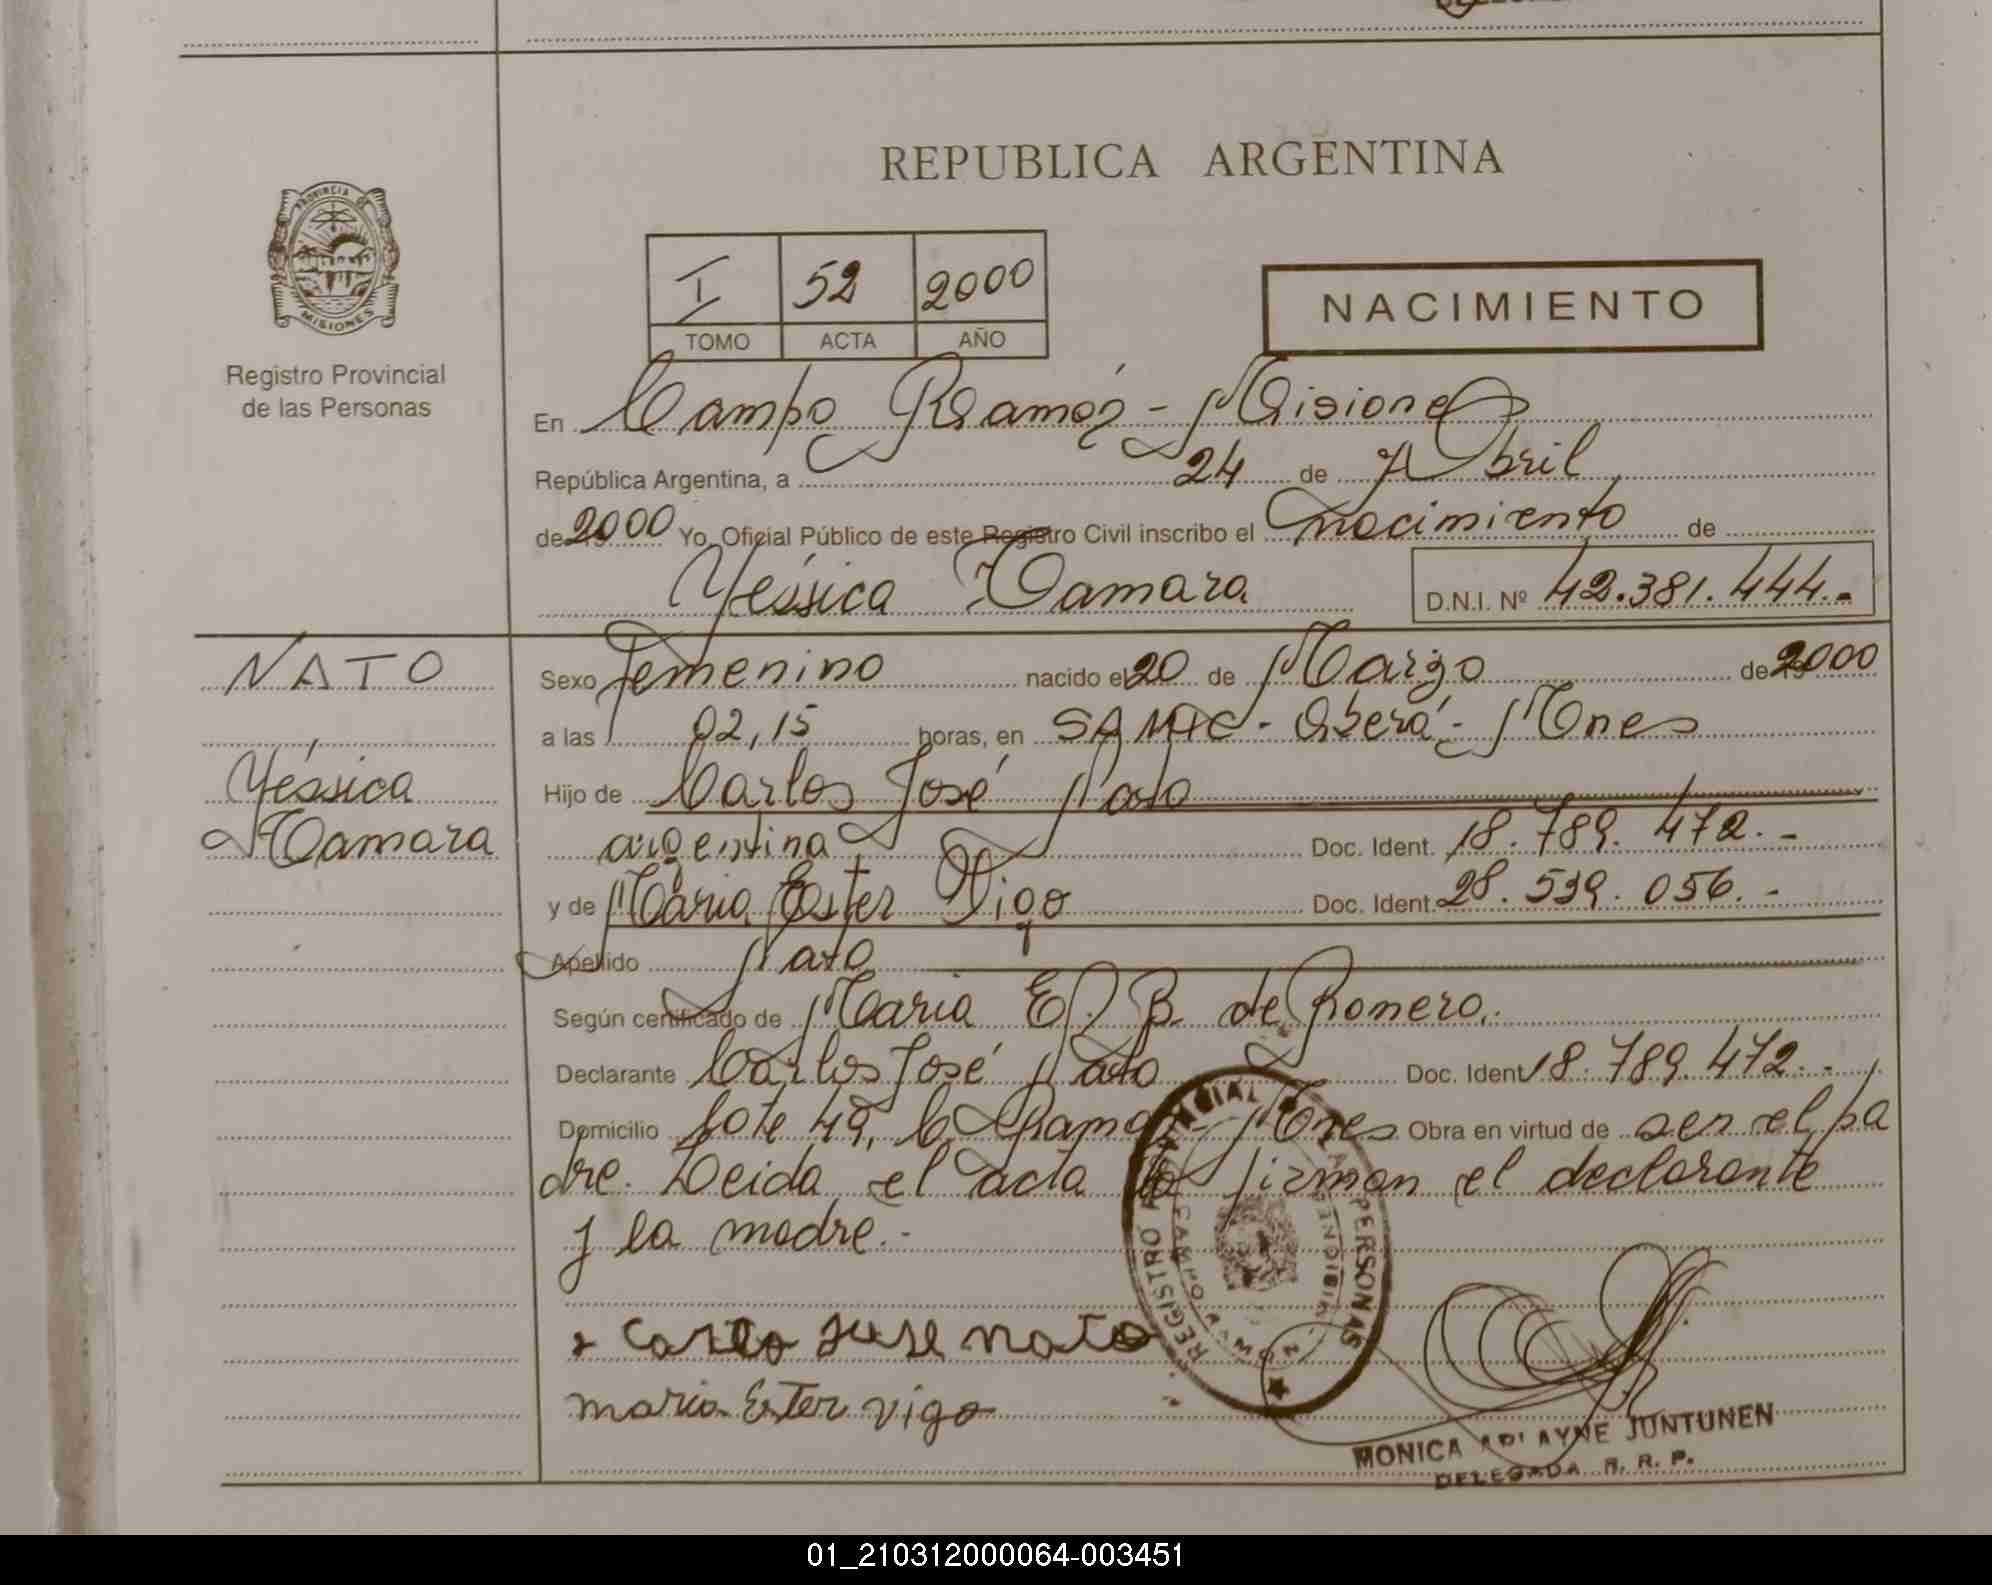 REPUBLICA ARGENTINA
PROVINCIA DE
MISIONES
Registro Provincial
de las Personas
I 52 2000
TOMO ACTA AÑO
NACIMIENTO
En Campo Ramón - Misiones
República Argentina, a 24 de Abril
de 2000 Yo, Oficial Público de este Registro Civil inscribo el nacimiento de
Yéssica Tamara D.N.I. Nº 42.381.444.-
NATO
Yéssica
Tamara
Sexo Femenino nacido el 20 de Marzo de 2000
a las 02,15 horas, en SAMIC - Oberá - Mnes
Hijo de Carlos José Nato
argentina Doc. Ident. 18.789.472.-
y de María Ester Vigo Doc. Ident. 28.539.056.-
Apellido Nato
Según certificado de Maria E. B. de Romero.
Declarante Carlos José Nato Doc. Ident 18.789.472.-
Domicilio Lote 49, C. Ramón - Mnes Obra en virtud de ser el pa
dre. Leida el acta la firman el declarante
y la madre.-
Carlo Juse nato
maria Ester vigo
REGISTRO PROVINCIAL PERSONAS
MONICA JUNTUNEN
DELEGADA R. R. P.
01_210312000064-003451